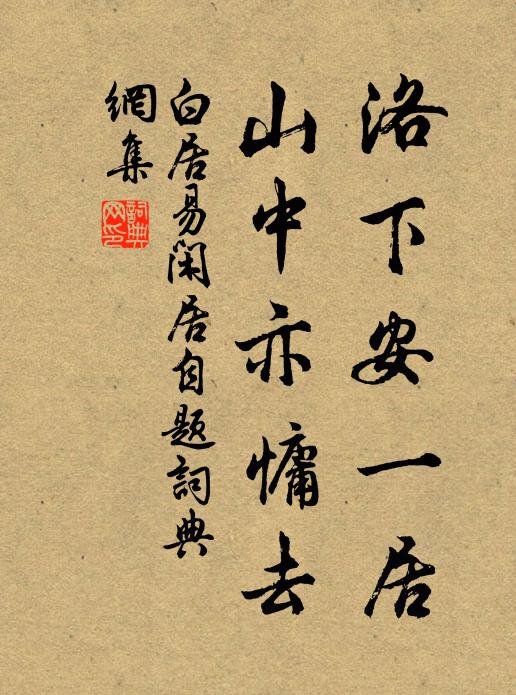 洛下安一居
山中亦慵去
白居易閑居自題詞典
網集
詞典
网印